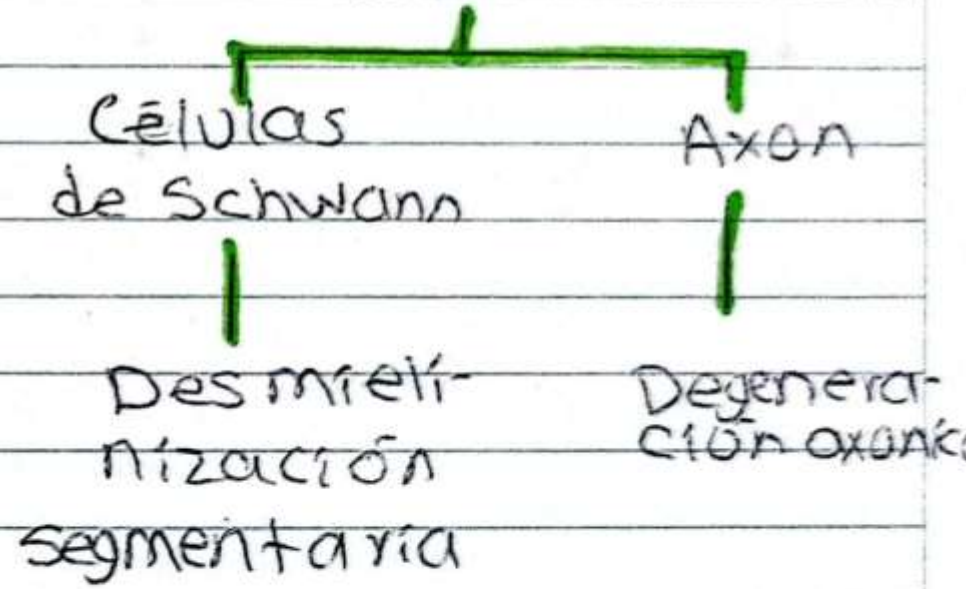 Células
de Schwann
Axon
Desmieli-
nización
segmentaria
Degenera-
ción axonic